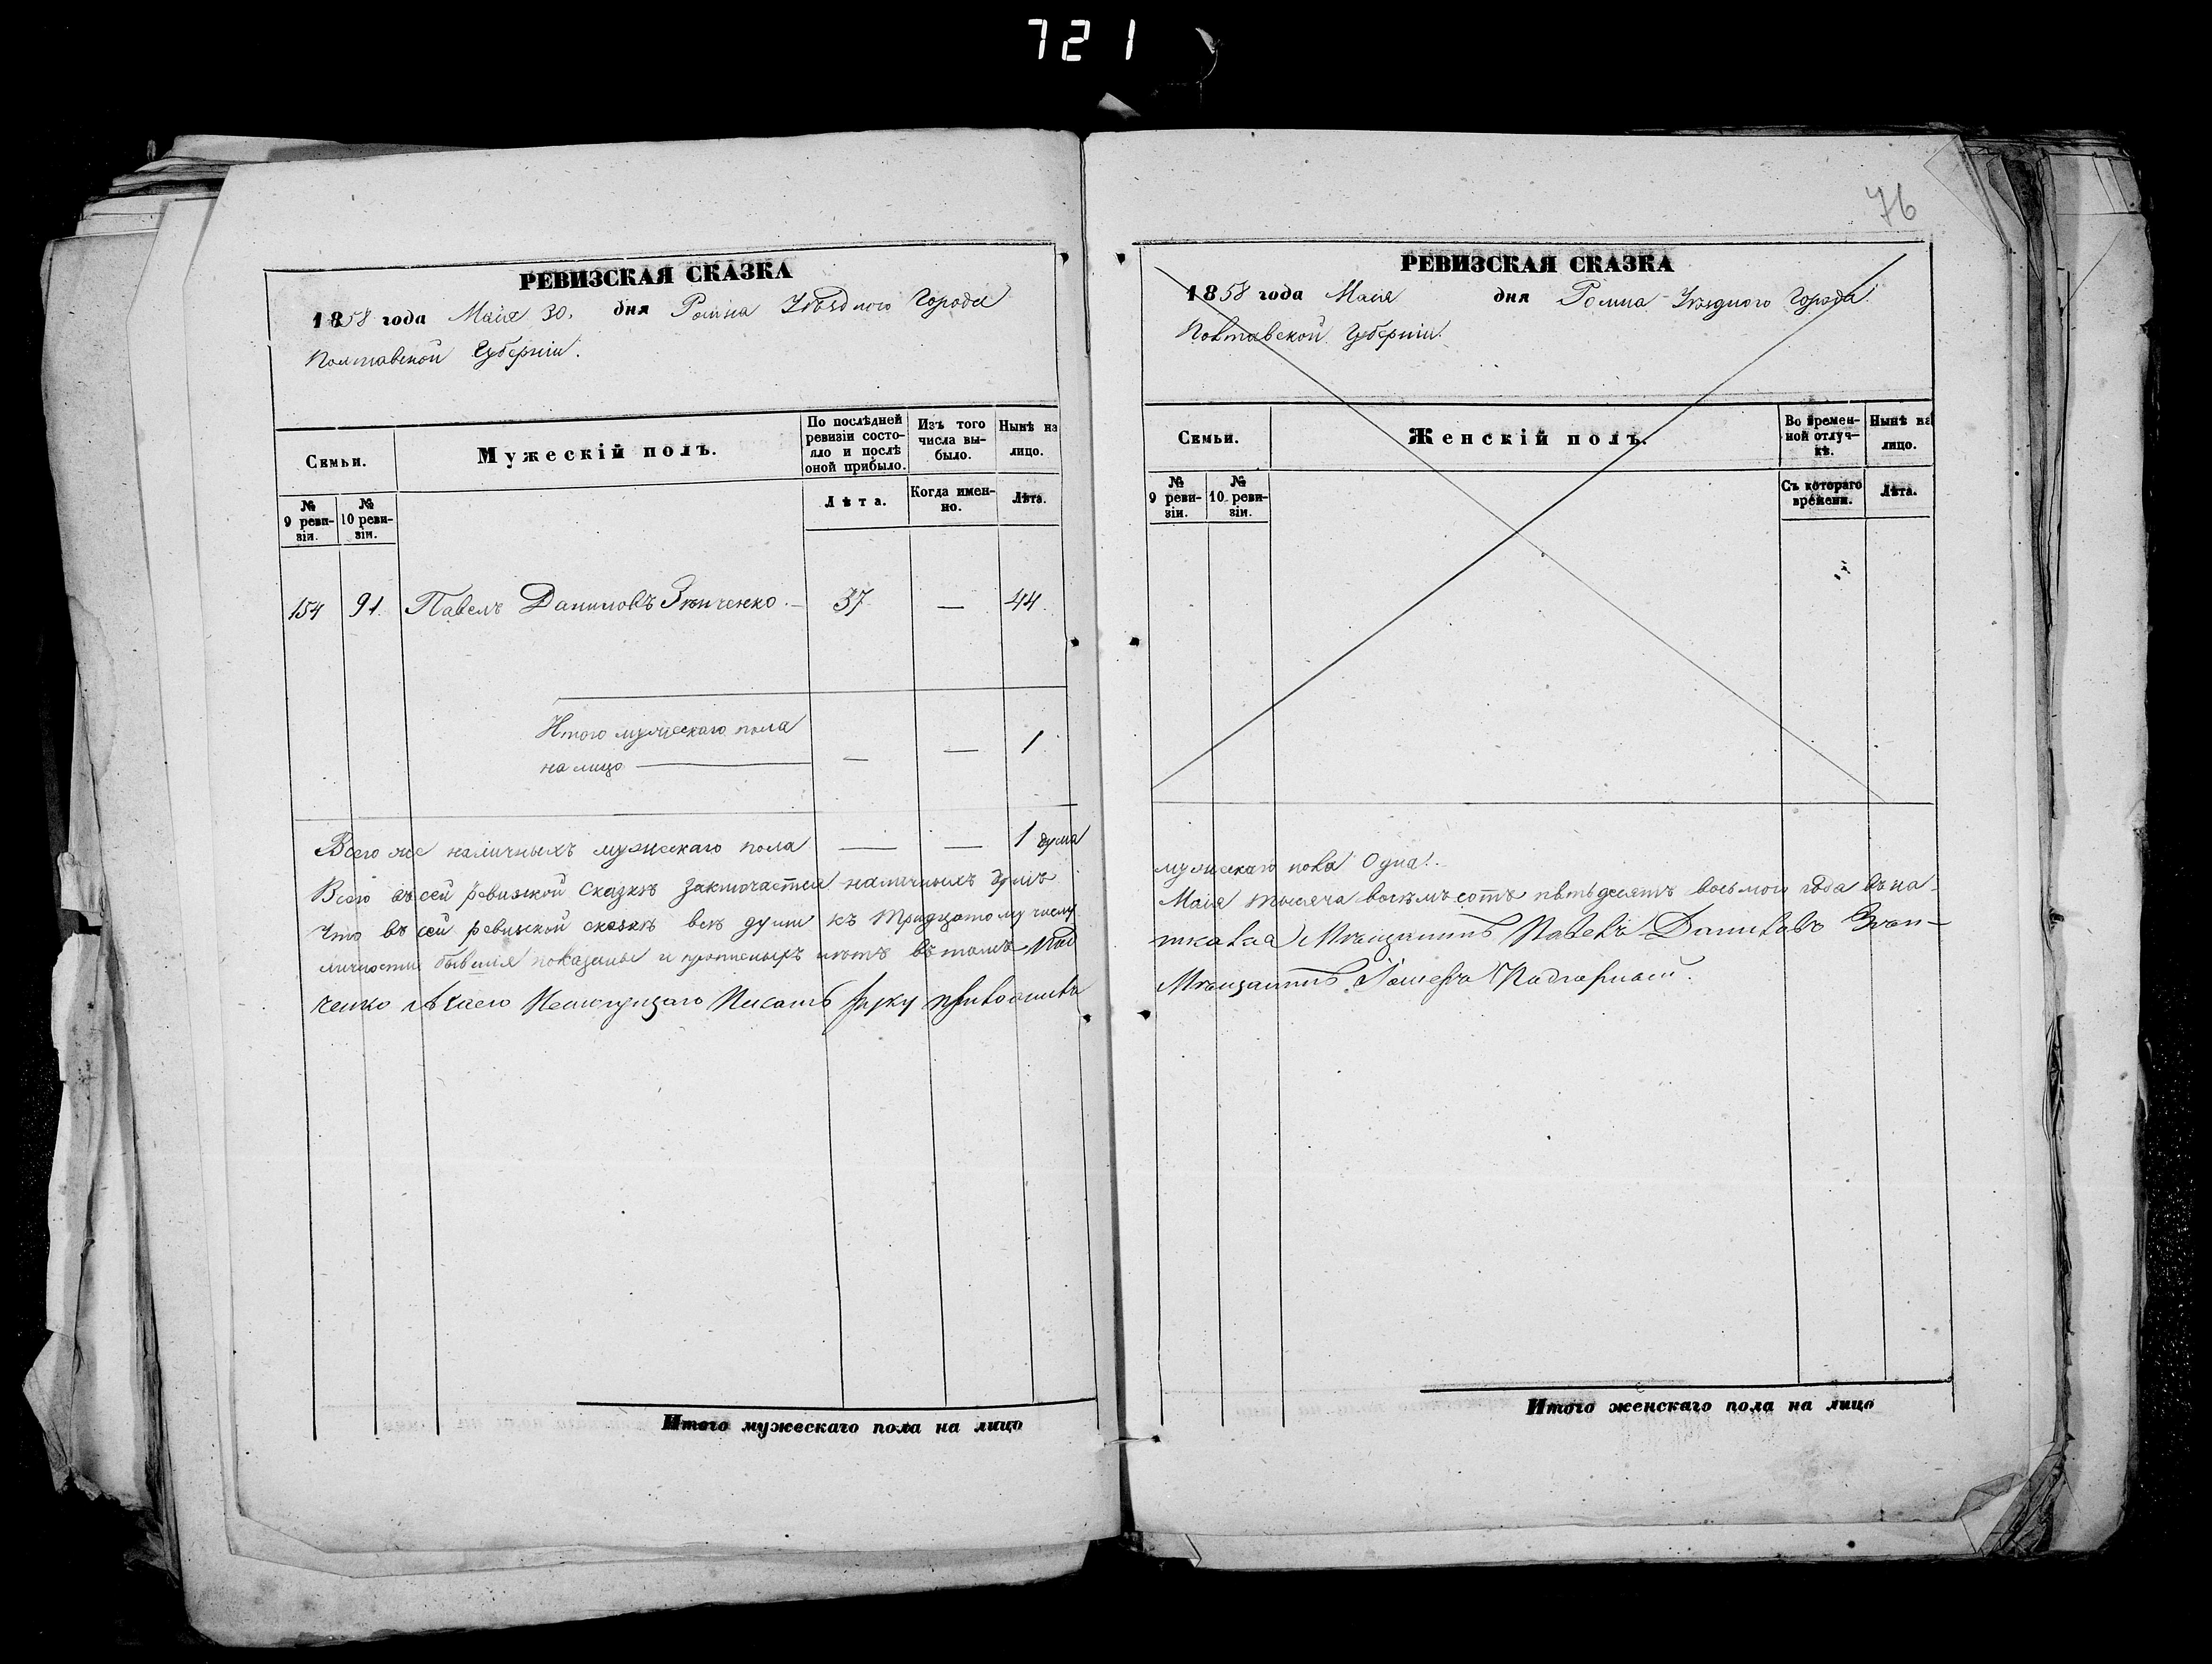 721
76
РЕВИЗСКАЯ СКАЗКА
1858 года Маія 30. дня Ромна Уѣзднаго Города
Полтавской Губерніи.
Семьи.
Мужескій полъ.
По послѣдней ревизіи состояло и послѣ оной прибыло.
Изъ того числа выбыло.
Нынѣ на лицо.
№ 9 ревизіи.
№ 10 ревизіи.
Лѣта.
Когда именно.
Лѣта.
154 91. Павелъ Даниловъ 37 — 44.
Итого мужескаго пола
на лицо — — — 1
Всего же наличныхъ мужескаго пола — — 1 душа
Всего въ сей ревизкой сказкѣ заключается наличныхъ душъ
Что въ сей ревизкой сказкѣ всѣ души къ тридцатому числу
личности бывшія показаны и прописныхъ нѣтъ въ томъ
ченко а Писать руку приложилъ
Итого мужескаго пола на лицо
РЕВИЗСКАЯ СКАЗКА
1858 года Маія дня Ромна Уѣзднаго Города
Полтавской Губерніи
Семьи.
Женскій полъ.
Во временной отлучкѣ.
Нынѣ на лицо.
№ 9 ревизіи.
№ 10 ревизіи.
Съ котораго времени.
Лѣта.
мужескаго пола Одна.
Маія тысяча восемьсотъ пятьдесятъ восьмого года въ на-
Мѣщанинъ Павелъ Даниловъ
Мѣщанинъ
Итого женскаго пола на лицо